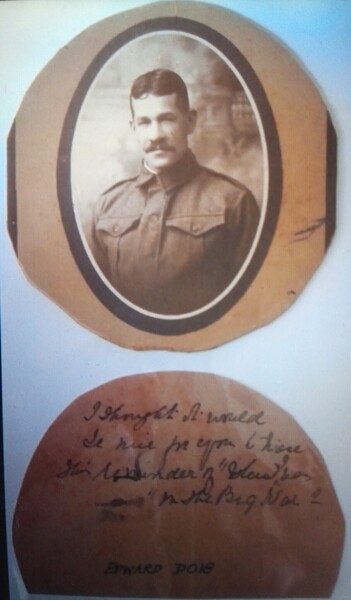 I thought it would
be nice for you to have
this reminder of "
" in the Big War"
EDWARD DOIG